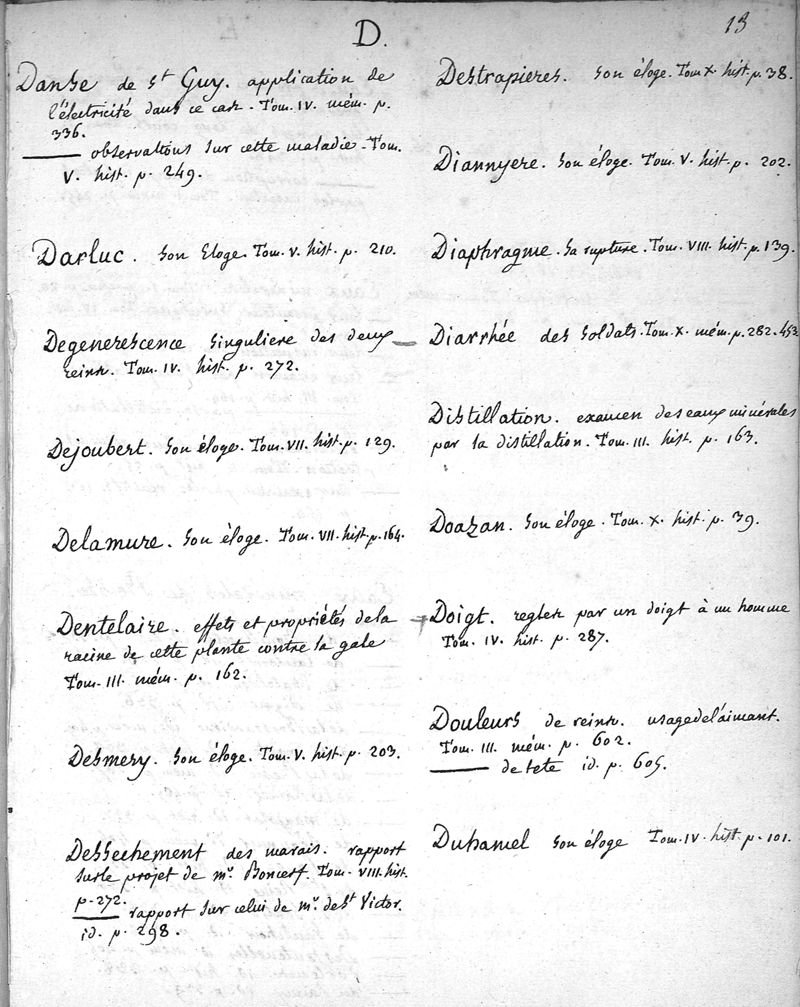 13
D.
Danse de St Guy. application de
l'électricité dans ce cas. Tom. IV. mém. p.
336.
—— observations sur cette maladie. Tom.
V. hist. p. 249.
Darluc. son Eloge. Tom. V. hist. p. 210.
Degenerescence singuliere des deux
reins. Tom. IV. hist. p. 272.
Dejoubert. son éloge. Tom. VII. hist. p. 129.
Delamure. son éloge. Tom. VII. hist. p. 164.
Dentelaire. effets et propriétés de la
racine de cette plante contre la gale
Tom. III. mém. p. 162.
Desmery. son éloge. Tom. V. hist. p. 203.
Dessechement des marais. rapport
sur le projet de mr. Boncerf. Tom. VIII. hist.
p. 272.
—— rapport sur celui de mr. de St Victor.
id. p. 298.
Destrapieres. son éloge. Tom X. hist. p. 38.
Diannyere. son éloge. Tom. V. hist. p. 202.
Diaphragme. sa rupture. Tom. VIII. hist. p. 139.
Diarrhée des soldats. Tom. X. mém. p. 282. 453
Distillation. examen des eaux minérales
par la distillation. Tom. III. hist. p. 163.
Doazan. son éloge. Tom. X. hist. p. 39.
Doigt. regles par un doigt à un homme
Tom. IV. hist. p. 287.
Douleurs de reins. usage de l'aimant.
Tom. III. mém. p. 602.
—— de tete id. p. 605.
Duhamel son éloge Tom. IV. hist. p. 101.